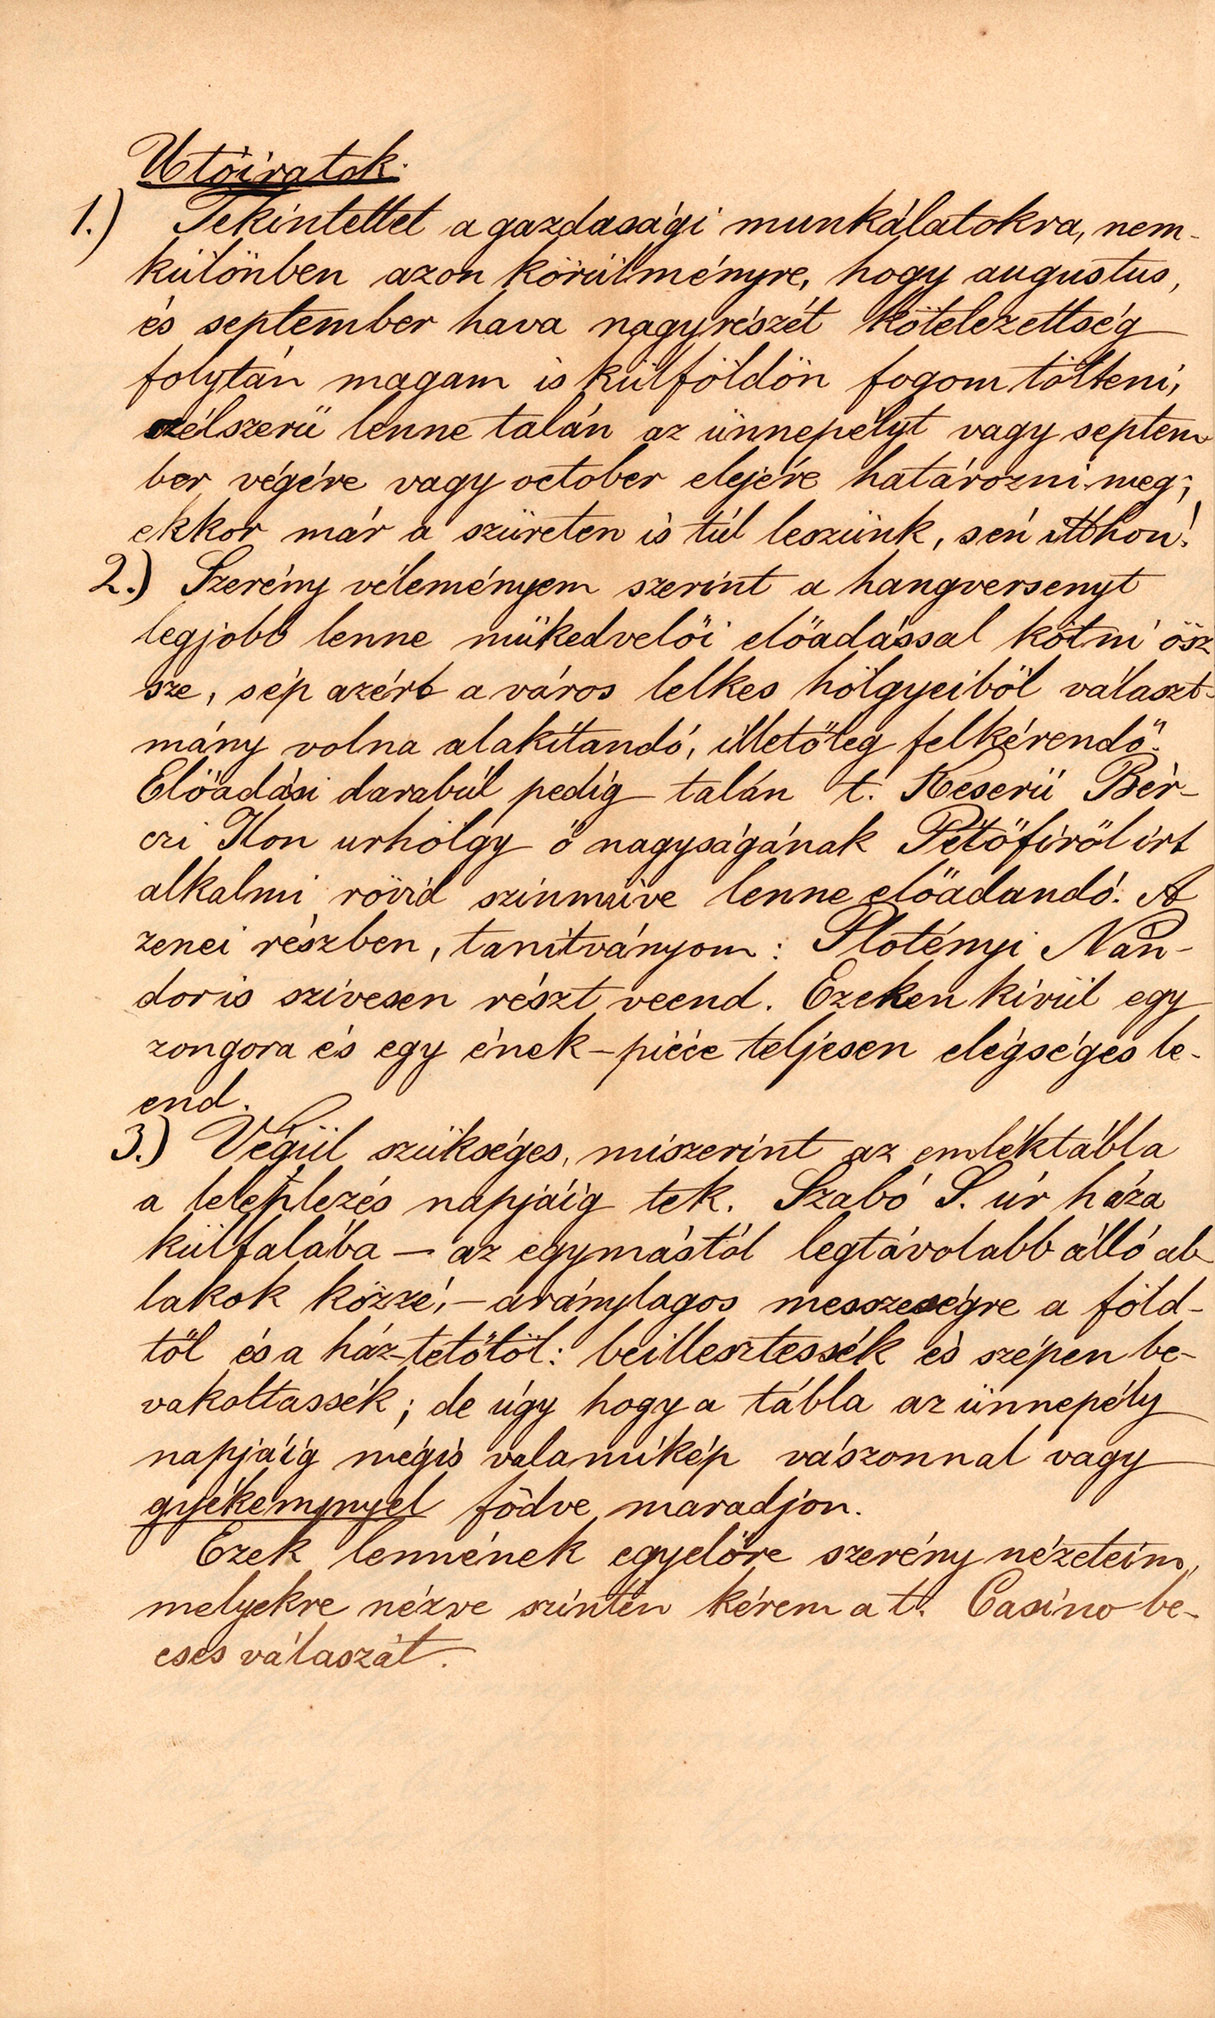 Utóiratok.
1.) Tekintettel a gazdasági munkálatokra, nem-
különben azon körülményre, hogy augustus,
és september hava nagyrészét kötelezettség
folytán magam is külföldön fogom tölteni,
célszerű lenne talán az ünnepélyt vagy septem
ber végére vagy october elejére határozni meg;
ekkor már a szüreten is túl leszünk, s én itthon!
2.) Szerény véleményem szerint a hangversenyt
legjobb lenne műkedvelői előadással kötni ösz
sze, s ép azért a város lelkes hölgyeiből választ-
mány volna alakítandó, illetőleg felkérendő.
Előadási darabúl pedig talán t. Keserü Bér-
czi Ilon urhölgy ő nagyságának Petőfiről írt
alkalmi rövid színműve lenne előadandó. A
zenei részben, tanítványom: Plotényi Nán-
dor is szívesen részt veend. Ezeken kívül egy
zongora és egy ének-pièce teljesen elégséges le-
end.
3.) Végül szükséges, miszerint az emléktábla
a leleplezés napjáig tek. Szabó S. úr háza
külfalába — az egymástól legtávolabb álló ab
lakok közzé, — aránylagos messzeségre a föld-
től és a ház-tetőtől: beillesztessék és szépen be-
vakoltassék; de úgy hogy a tábla az ünnepély
napjáig mégis valamikép vászonnal vagy
gyékénynyel födve maradjon.
Ezek lennének egyelőre szerény nézeteim,
melyekre nézve szintén kérem a t. Casino be-
cses válaszát.